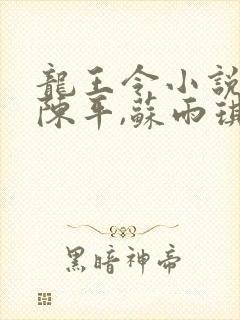 龍王令小說
陳平,蘇雨琪
黑暗神帝